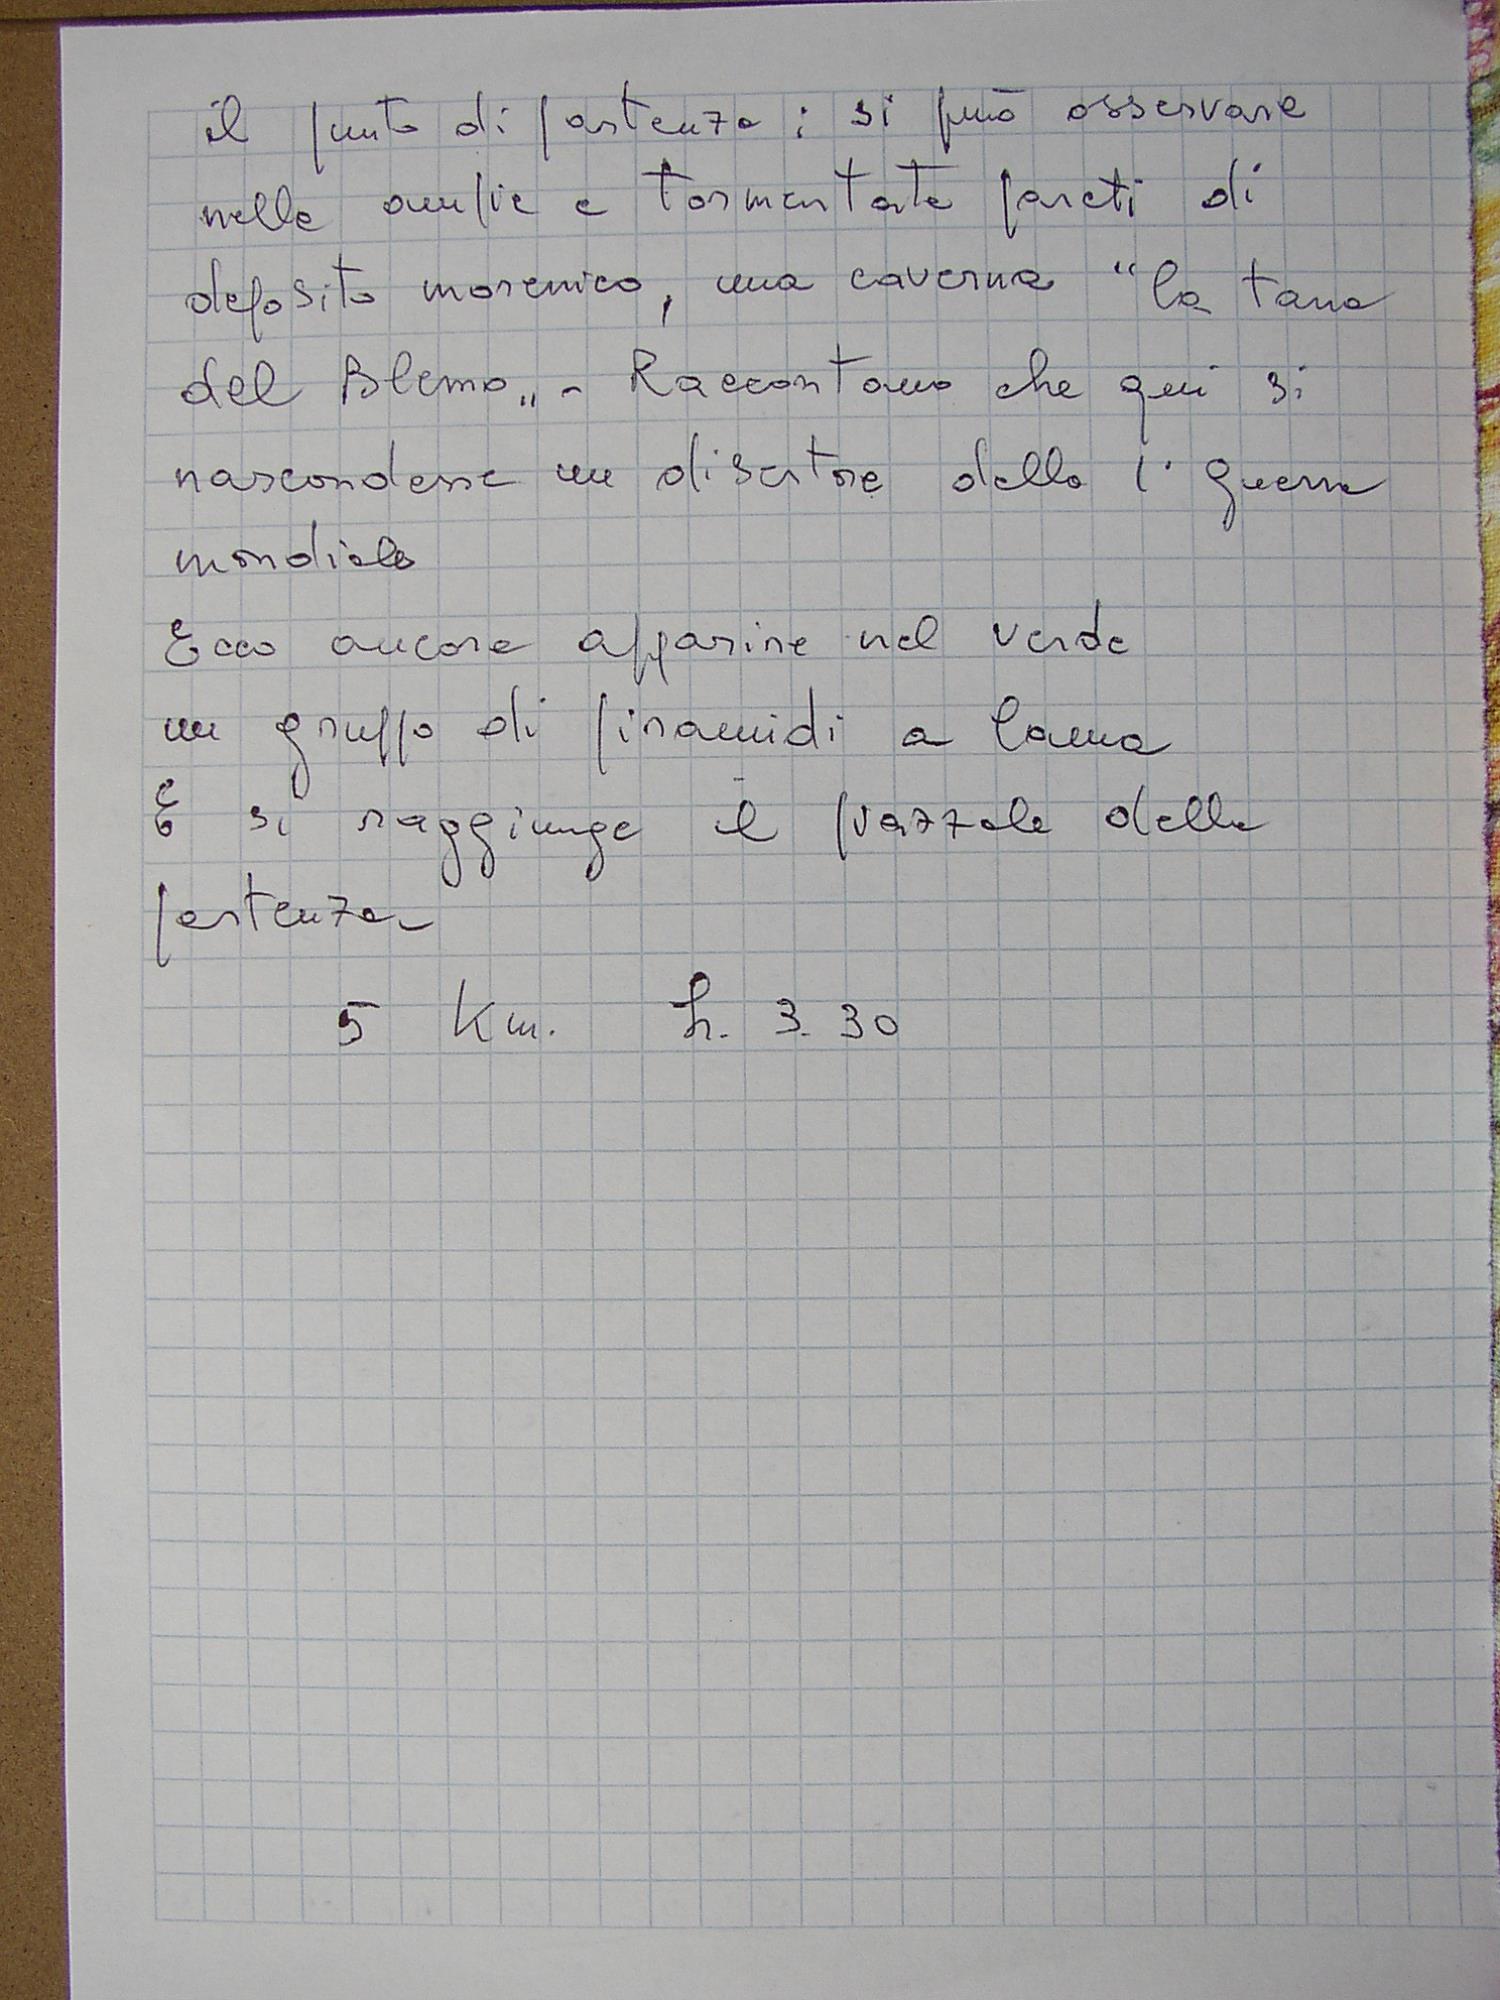 il punto di partenza; si può osservare
nelle ampie e tormentate pareti di
deposito morenico, una caverna "la tana
del Blemo„ - Raccontano che qui si
nascondesse un disertore della 1ª guerra
mondiale
Ecco ancora apparire nel verde
un gruppo di piramidi a lama
E si raggiunge il piazzale della
partenza
5 Km. h. 3.30